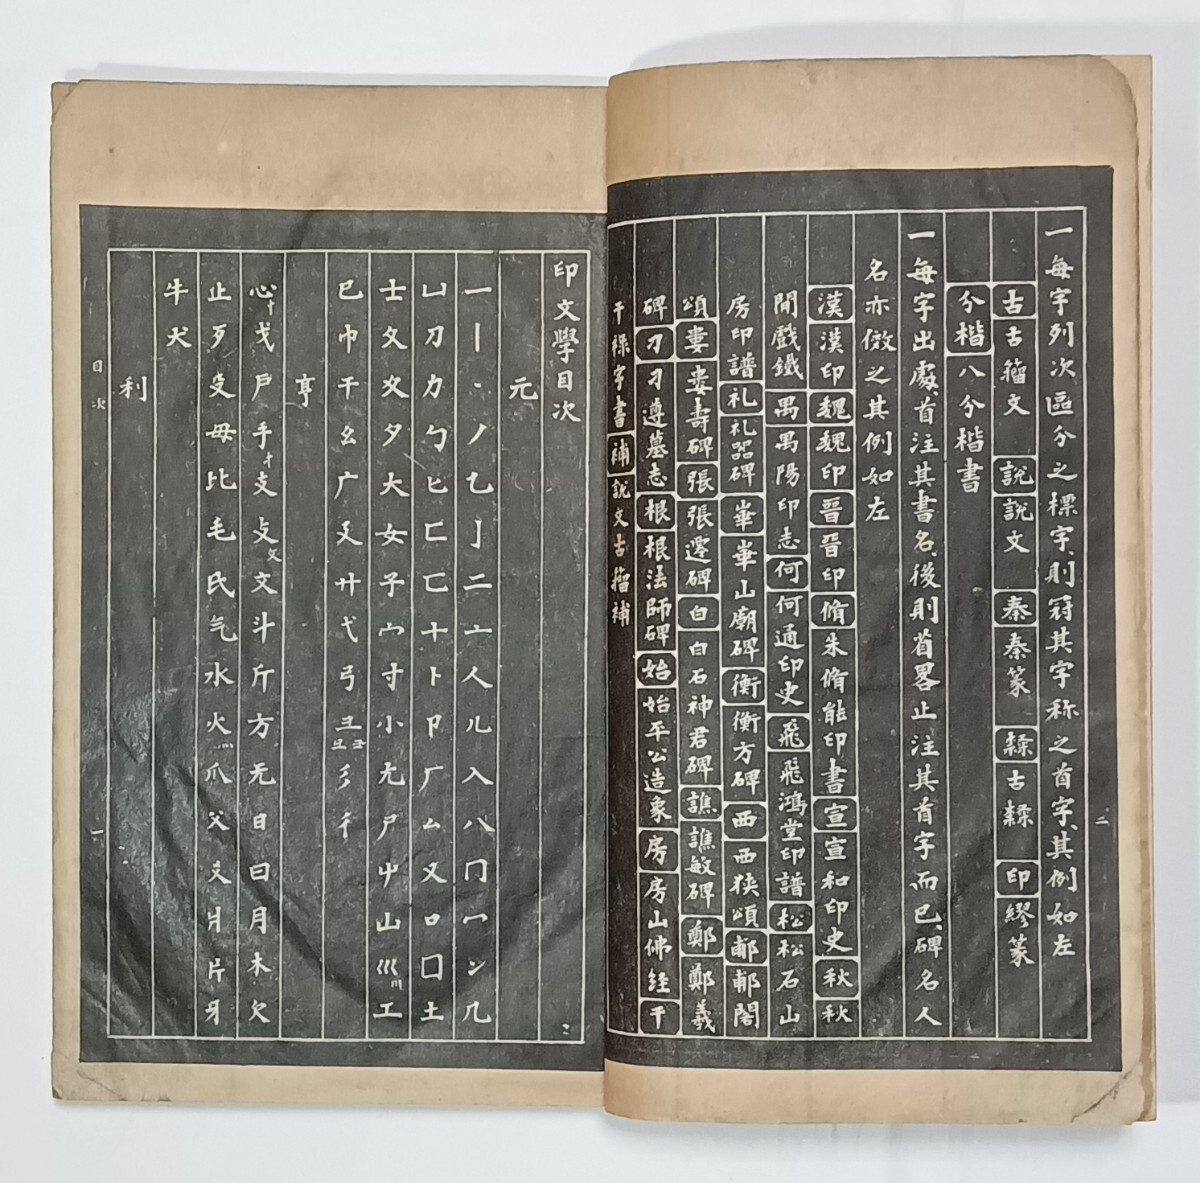 一每字列次區分之標字、則冠其字称之首字、其例如左
古古籀文 說說文 秦秦篆 隸古隸 印繆篆
分楷八分楷書
一每字出處、首注其書名、後則省畧止注其首字而已、碑名人
名亦倣之其例如左
漢漢印魏魏印晉晉印脩朱脩能印書宣宣和印史秋秋
閒戲鐵禺禺陽印志何何通印史飛飛鴻堂印譜松松石山
房印譜礼礼器碑崋崋山廟碑衡衡方碑西西狹頌郙郙閣
頌婁婁壽碑張張遷碑白白石神君碑譙譙敏碑鄭鄭羲
碑刁刁遵墓志根根法師碑始始平公造象房房山佛経干
干祿字書補說文古籀補
二
印文學目次
元
一丨丶丿乙亅二亠人儿入八冂冖冫几
凵刀力勹匕匚匸十卜卩厂厶又口囗土
士夂夊夕大女子宀寸小尢尸屮山巛川工
己巾干幺广廴廾弋弓彐彑彐彡彳
亨
心忄戈戶手扌支攴攵文斗斤方无日曰月木欠
止歹殳毋比毛氏气水火灬爪父爻爿片牙
牛犬
利
目次
一